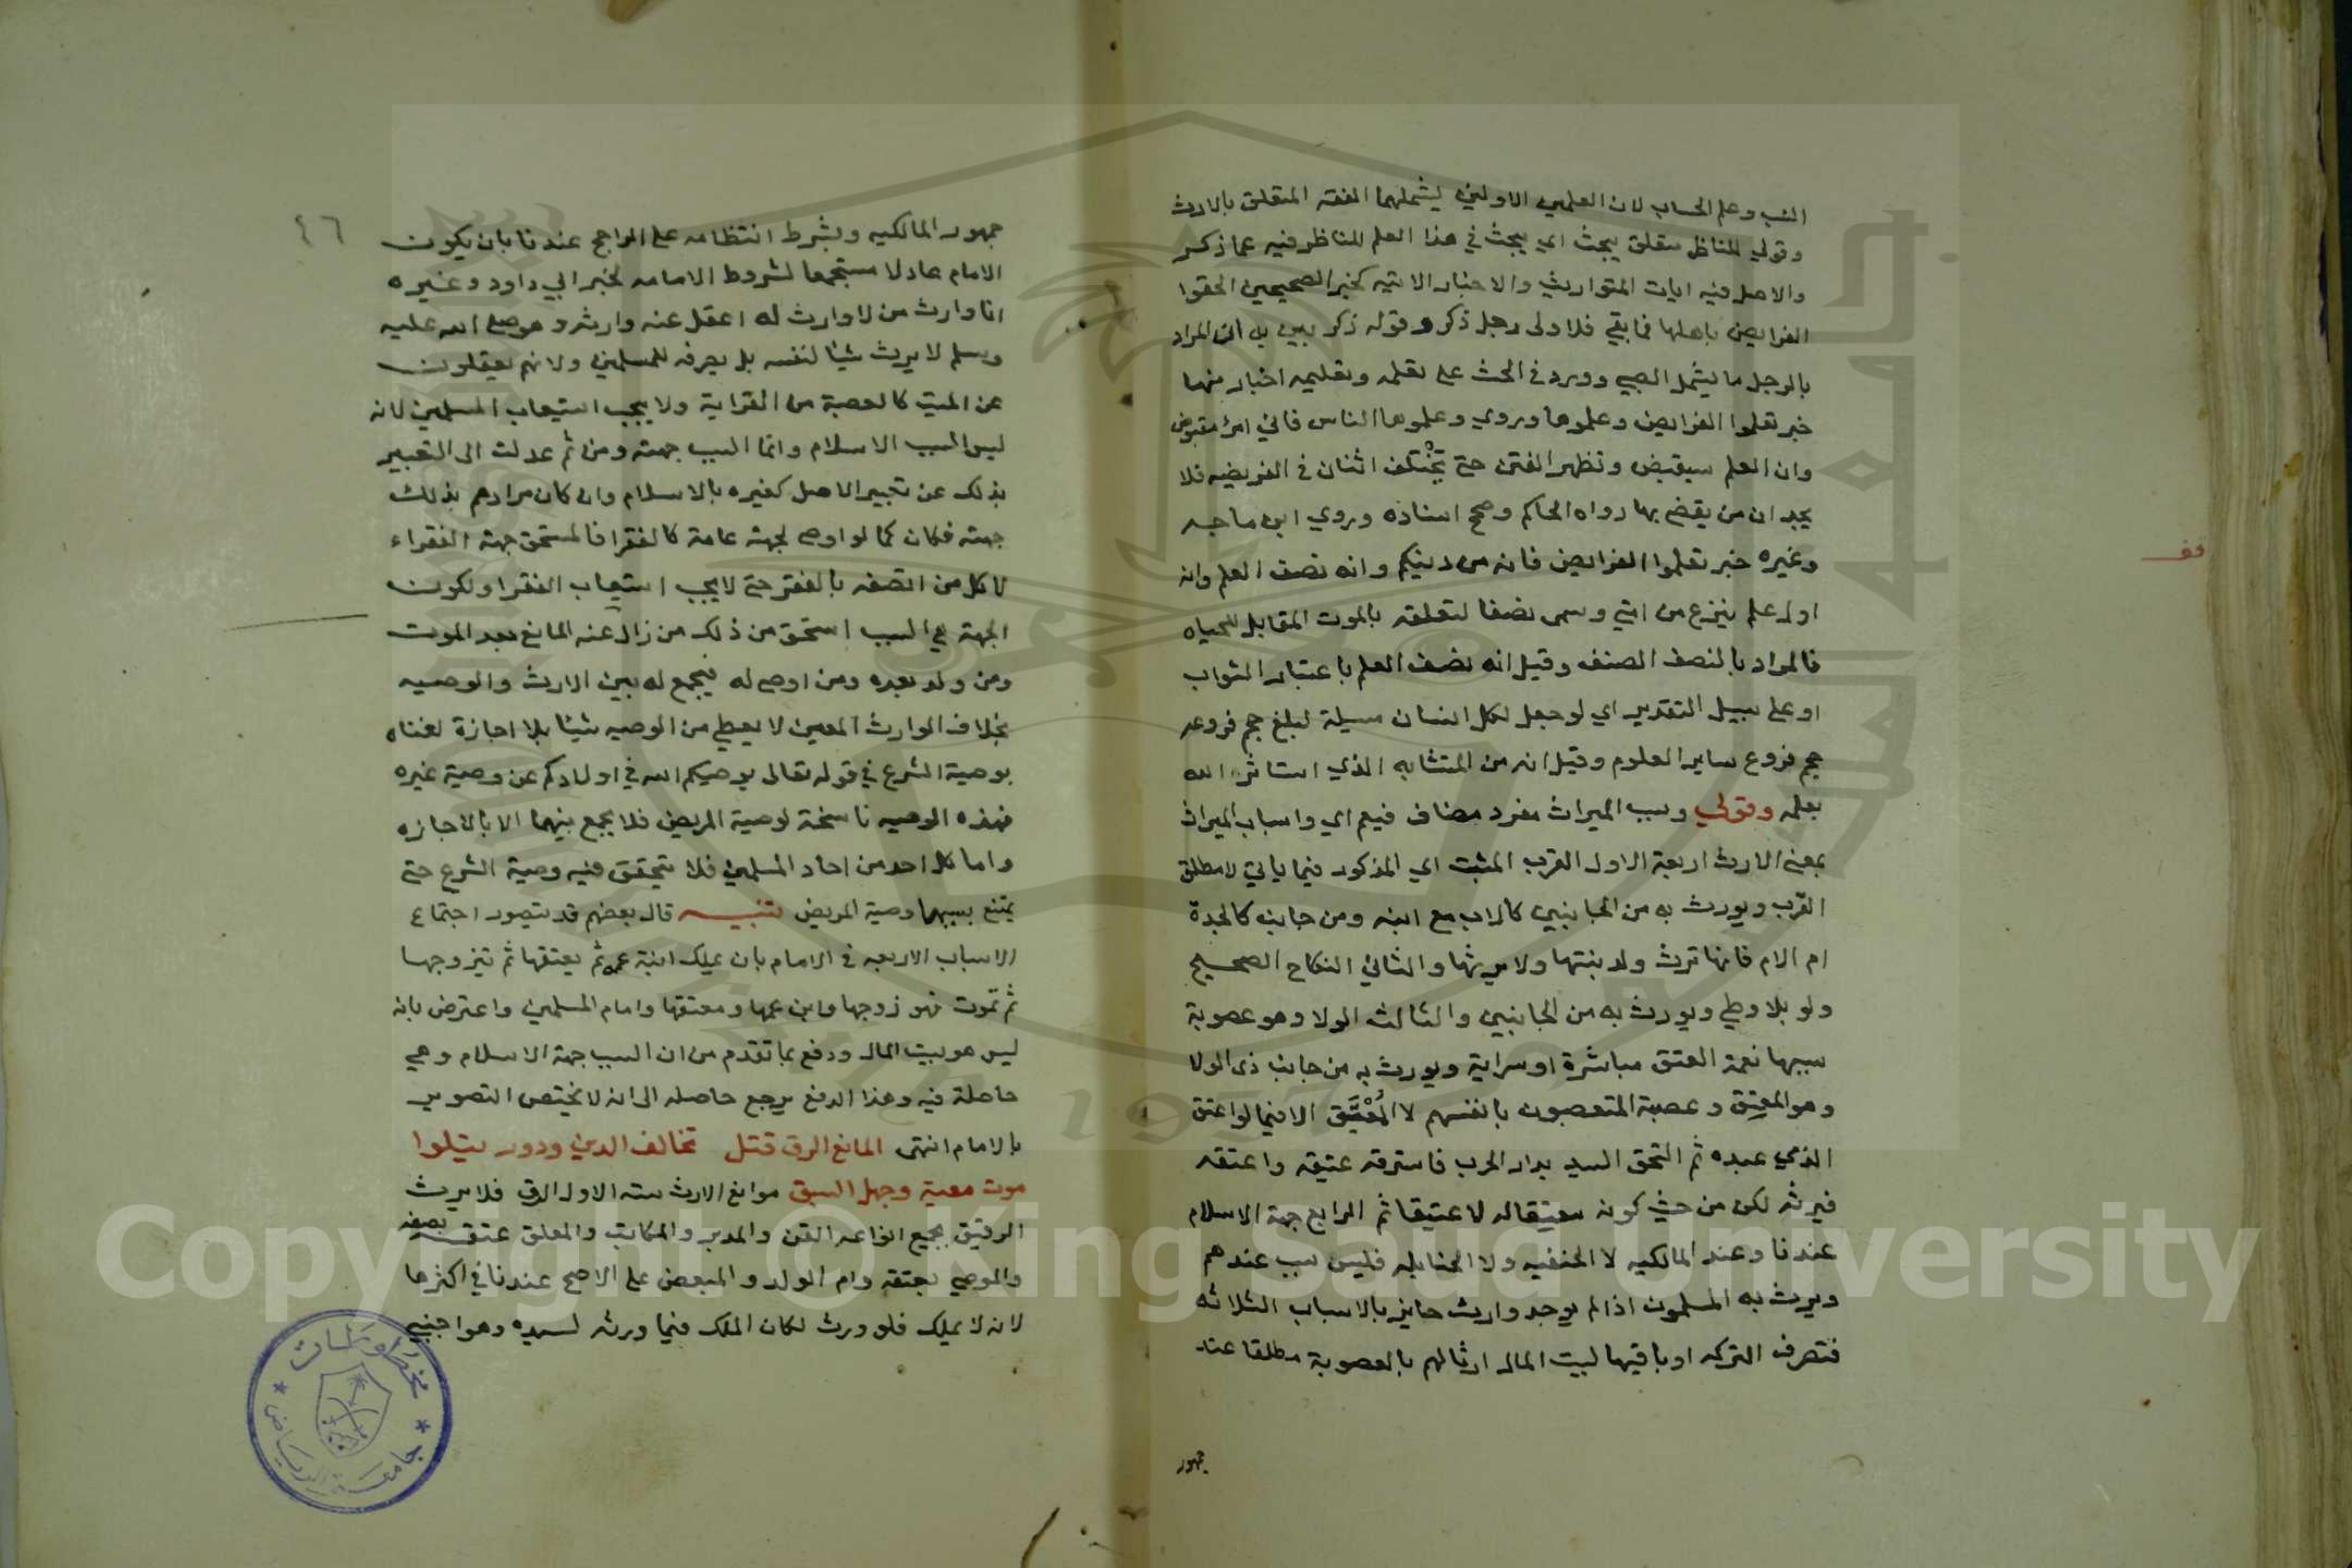 النسب وعلم الحساب لان العلمين الاولين يشملهما الفقه المتعلق بالارث
وقولي للناظر متعلق يبحث اي يبحث في هذا العلم للناظر فيه عما ذكر
والاصل فيه ايات المواريث والاخبار الاتيه كخبر الصحيحين الحقوا
الفرايض باهلها فما بقي فلاولى رجل ذكر وقوله ذكر يبين ان المراد
بالرجل ما يشمل الصبي وورد في الحث على تعلمه وتعليمه اخبار منها
خبر تعلموا الفرايض وعلموها وروي وعلموها الناس فاني امرؤ مقبوض
وان العلم سيقبض وتظهر الفتن حتى يختلف اثنان في الفريضه فلا
يجدان من يقضي بها رواه الحاكم وصحح اسناده وروي ابن ماجه
وغيره خبر تعلموا الفرايض فانه من دينكم وانه نصف العلم وانه
اول علم ينزع من امتي وسمى نصفا لتعلقه بالموت المقابل للحياه
فالمراد بالنصف الصنف وقيل انه نصف العلم باعتبار الثواب
او على سبيل التقدير اي لو جعل لكل انسان مسيلة لبلغ حجم فروعه
حجم فروع ساير العلوم وقيل انه من المتشابه الذي استاثر الله
بعلمه وقولي وسبب الميراث مفرد مضاف فيعم اي واسباب الميراث
بمعنى الارث اربعة الاول القرب المثبت اي المذكور فيما ياتي لا مطلق
القرب ويورث به من الجانبين كالاب مع ابنه ومن جانبه كالجدة
ام الام فانها ترث ولد بنتها ولا يرثها والثاني النكاح الصحيح
ولو بلا وطي ويورث به من الجانبين والثالث الولا وهو عصوبة
سببها نعمة العتق مباشرة او سراية ويورث به من جانب ذي الولا
وهو المعتق وعصبة المتعصبون بانفسهم لا المُعْتَق الا فيما لو اعتق
الذمي عبده ثم التحق السيد بدار الحرب فاسترقه عتيقه واعتقه
فيرثه لكن من حيث كونه معتقا له لا عتيقا ثم الرابع جهة الاسلام
عندنا وعند المالكيه لا الحنفيه ولا الحنابله فليس سبب عندهم
ويرث به المسلمون اذا لم يوجد وارث حايز بالاسباب الثلاثه
فتصرف التركه او باقيها لبيت المال ارثا لهم بالعصوبة مطلقا عند
جمهور
وقف
٤٦
جمهور المالكيه وبشرط انتظامه على الراجح عندنا بان يكون
الامام عادلا مستجمعا لشروط الامامه لخبر ابي داود وغيره
انا وارث من لا وارث له اعقل عنه وارثه وهو صلى الله عليه
وسلم لا يرث شيئا لنفسه بل يصرفه للمسلمين ولانهم يعقلون
عن الميت كالعصبة من القرابة ولا يجب استيعاب المسلمين لانه
ليس السبب الاسلام وانما السبب جهته ومن ثم عدلت الى التعبير
بذلك عن تعبير الاصل كغيره بالاسلام وان كان مرادهم بذلك
جهته فكان كما لو اوصى لجهة عامة كالفقرا فالمستحق جهة الفقراء
لا كل من اتصف بالفقر حتى لا يجب استيعاب الفقرا ولكون
الجهة هي السبب استحق من ذلك من زال عنه المانع بعد الموت
ومن ولد بعده ومن اوصى له فيجمع له بين الارث والوصيه
بخلاف الوارث المعين لا يعطي من الوصيه شيئا بلا اجازة لغناه
بوصية الشرع في قوله تعالى يوصيكم الله في اولادكم عن وصية غيره
فهذه الوصيه ناسخة لوصية المريض فلا يجمع بينهما الا بالاجازه
واما كل احد من احاد المسلمين فلا تتحقق فيه وصية الشرع حتى
يمتنع بسببها وصية المريض تنبيه قال بعضهم قد يتصور اجتماع
الاسباب الاربعه في الامام بان يملك ابنة عمه ثم يعتقها ثم يتزوجها
ثم تموت فهو زوجها وابن عمها ومعتقها وامام المسلمين واعترض بانه
ليس هو بيت المال ودفع بما تقدم من ان السبب جهة الاسلام وهي
حاصلة فيه وهذا الدفع يرجع حاصله الى انه لا يختص التصوير
بالامام انتهى المانع الرق قتل تخالف الدين ودور يتلوا
موت معية وجهل السبق موانع الارث سته الاول الرق فلا يرث
الرقيق بجميع انواعه القن والمدبر والمكاتب والمعلق عتقه بصفه
والموصي بعتقه وام الولد والمبعض على الاصح عندنا في اكثرها
لانه لا يملك فلو ورث لكان الملك فيما ورثه لسيده وهو اجنبي
مخطوطات
جامعة الرياض
Copyright © King Saud University
1957